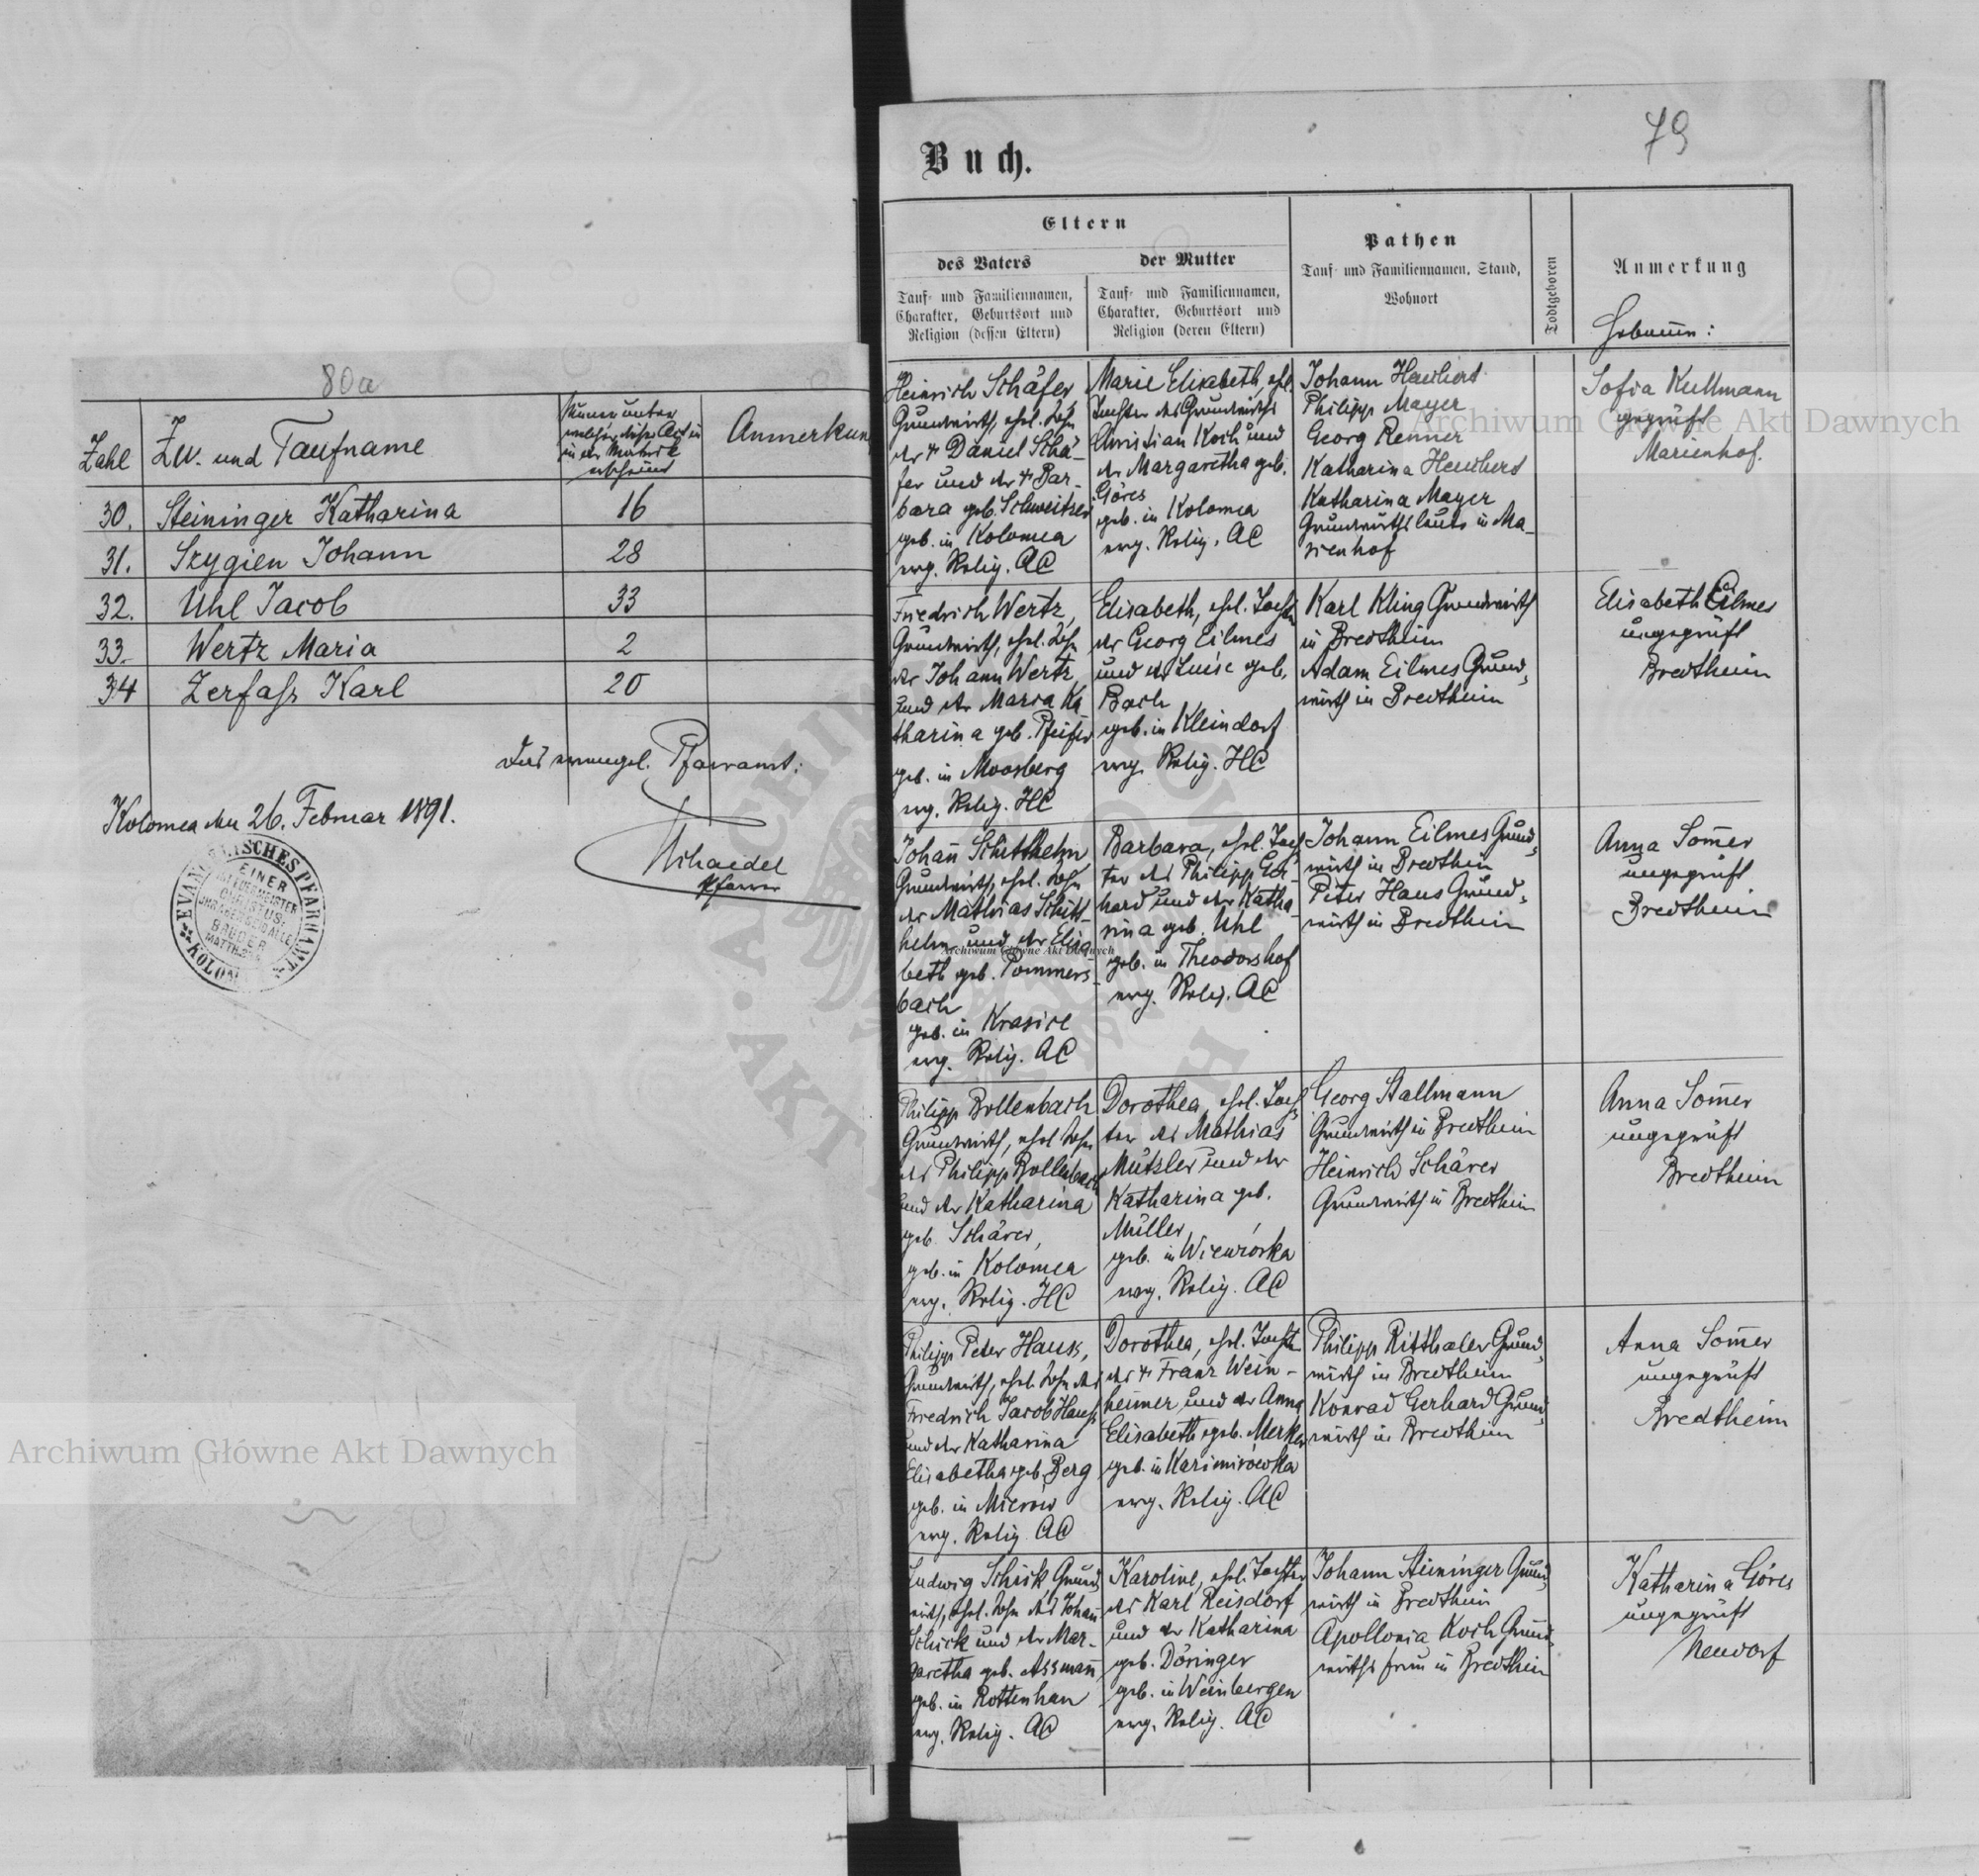 80a
Zahl
Zu. und Taufname
Nummer unter
welcher dieser Act in
in der Matrik
erscheint
Anmerkun
30. Steininger Katharina 16
31. Szygien Johann 28
32. Uhl Jacob 33
33. Wertz Maria 2
34 Zerfass Karl 20
Das evangel. Pfarramt:
Kolomea den 26. Februar 1891.
Pfarrer
EVANGELISCHES PFARRAMT
KOLOM
EINER
IST EUER MEISTER
CHRISTUS,
IHR ABER SEID ALLE
BRÜDER
MATTH. 23.
79
Buch.
Eltern
des Vaters
Tauf- und Familiennamen,
Charakter, Geburtsort und
Religion (dessen Eltern)
der Mutter
Tauf- und Familiennamen,
Charakter, Geburtsort und
Religion (deren Eltern)
Pathen
Tauf- und Familiennamen, Stand,
Wohnort
Todtgeboren
Anmerkung
Hebamme:
Heinrich Schäfer,
Grundwirth, ehel. Sohn
des † Daniel Schä-
fer und der † Bar-
bara geb. Schweitzer
geb. in Kolomea
evg. Relig. AC
Marie Elisabeth, ehel.
Tochter des Grundwirths
Christian Koch und
der Margaretha geb.
Göres
geb. in Kolomea
evg. Relig. AC
Johann Heuchert
Philipp Mayer
Georg Renner
Katharina Heuchert
Katharina Mayer
Grundwirthsleute in Ma-
rienhof
Sofia Kullmann
geprüft
Marienhof.
Friedrich Wertz,
Grundwirth, ehel. Sohn
des Johann Wertz
und der Maria Ka
tharina geb. Pfeifer
geb. in Moosberg
evg. Relig. HC
Elisabeth, ehel. Tochter
des Georg Eilmes
und der Luise geb.
Bach
geb. in Kleindorf
evg. Relig. HC
Karl Kling Grundwirth
in Bredtheim
Adam Eilmes Grund-
wirth in Bredtheim
Elisabeth Eilmes
ungeprüft
Bredtheim
Johan̄ Schitthelm
Grundwirth, ehel. Sohn
des Mathias Schitt-
helm und der Elisa-
beth geb. Pommers-
bach
geb. in Krasice
evg. Relig. AC
Barbara, ehel. Toch-
ter des Philipp Ger-
hard und der Katha-
rina geb. Uhl
geb. in Theodorshof
evg. Relig. AC
Johann Eilmes Grund-
wirth in Bredtheim
Peter Haus Grund-
wirth in Bredtheim
Anna Som̄er
ungeprüft
Bredtheim
Philipp Bollenbach
Grundwirth, ehel. Sohn
des Philipp Bollenbach
und der Katharina
geb. Schärer,
geb. in Kolomea
evg. Relig. HC
Dorothea, ehel. Toch-
ter des Mathias
Mützler und der
Katharina geb.
Müller,
geb. in Wiewiorka
evg. Relig. AC
Georg Stallmann
Grundwirth in Bredtheim
Heinrich Schärer
Grundwirth in Bredtheim
Anna Som̄er
ungeprüft
Bredtheim
Philipp Peter Haus,
Grundwirth, ehel. Sohn des
Friedrich Jacob Haus
und der Katharina
Elisabetha geb. Berg
geb. in Mierow
evg. Relig. AC
Dorothea, ehel. Tochter
des † Franz Wein-
heimer und der Anna
Elisabeth geb. Merker
geb. in Kazimirowka
evg. Relig. AC
Philipp Ritthaler Grund-
wirth in Bredtheim
Konrad Gerhard Grund-
wirth in Bredtheim
Anna Som̄er
ungeprüft
Bredtheim
Ludwig Schick Grund-
wirth, ehel. Sohn des Johan̄
Schick und der Mar-
garetha geb. Assman̄
geb. in Rottenhan
evg. Relig. AC
Karoline, ehel. Tochter
des Karl Reisdorf
und der Katharina
geb. Döringer
geb. in Weinbergen
evg. Relig. AC
Johann Steininger Grund-
wirth in Bredtheim
Apollonia Koch Grund-
wirths frau in Bredtheim
Katharina Göres
ungeprüft
Neudorf
Archiwum Główne Akt Dawnych
Archiwum Główne Akt Dawnych
Archiwum Główne Akt Dawnych